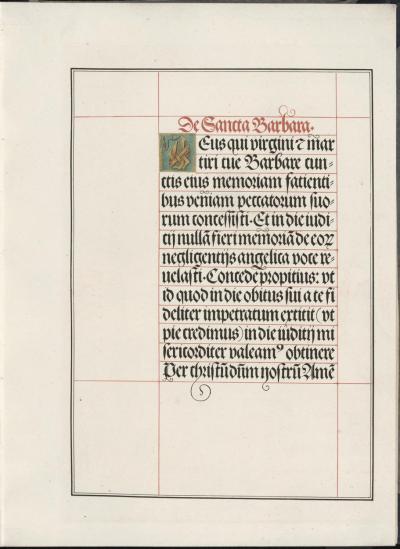 De Sancta Barbara.
DEus qui virgini ⁊ mar
tiri tue Barbare cun-
ctis eius memoriam facienti-
bus veniam peccatorum suo-
rum concessisti. Et in die iudi-
cij nullā fieri memoriā de eoꝝ
negligentijs angelica voce re-
uelasti. Concede propitius: vt
id quod in die obitus sui a te fi
deliter impetratum extitit (vt
pie credimus) in die iuditij mi
sericorditer valeamꝰ obtinere
Per christū dn̄m nostrū Amē